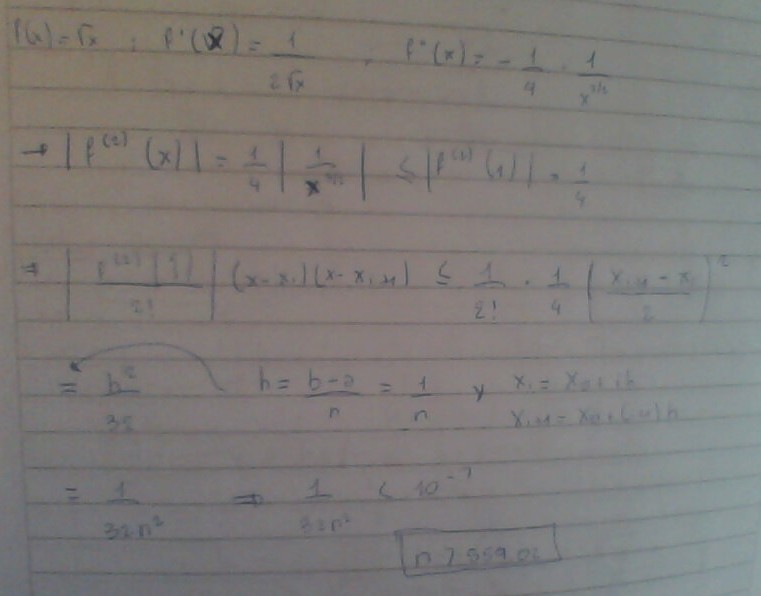 f(x) = √x ; f'(x) = 1/(2√x) , f''(x) = - 1/4 · 1/x^(3/2)
→ |f^(2)(x)| = 1/4 |1/x^(3/2)| ≤ |f^(2)(1)| = 1/4
⇒ |f^(2)(ξ)/2!| (x-xi)(x-xi+1) ≤ 1/2! · 1/4 ((xi+1 - xi)/2)^2
= h^2/32 h = (b-a)/n = 1/n y xi = x0+ih
xi+1 = x0+(i+1)h
= 1/(32n^2) ⇒ 1/(32n^2) < 10^-7
n > 559.02